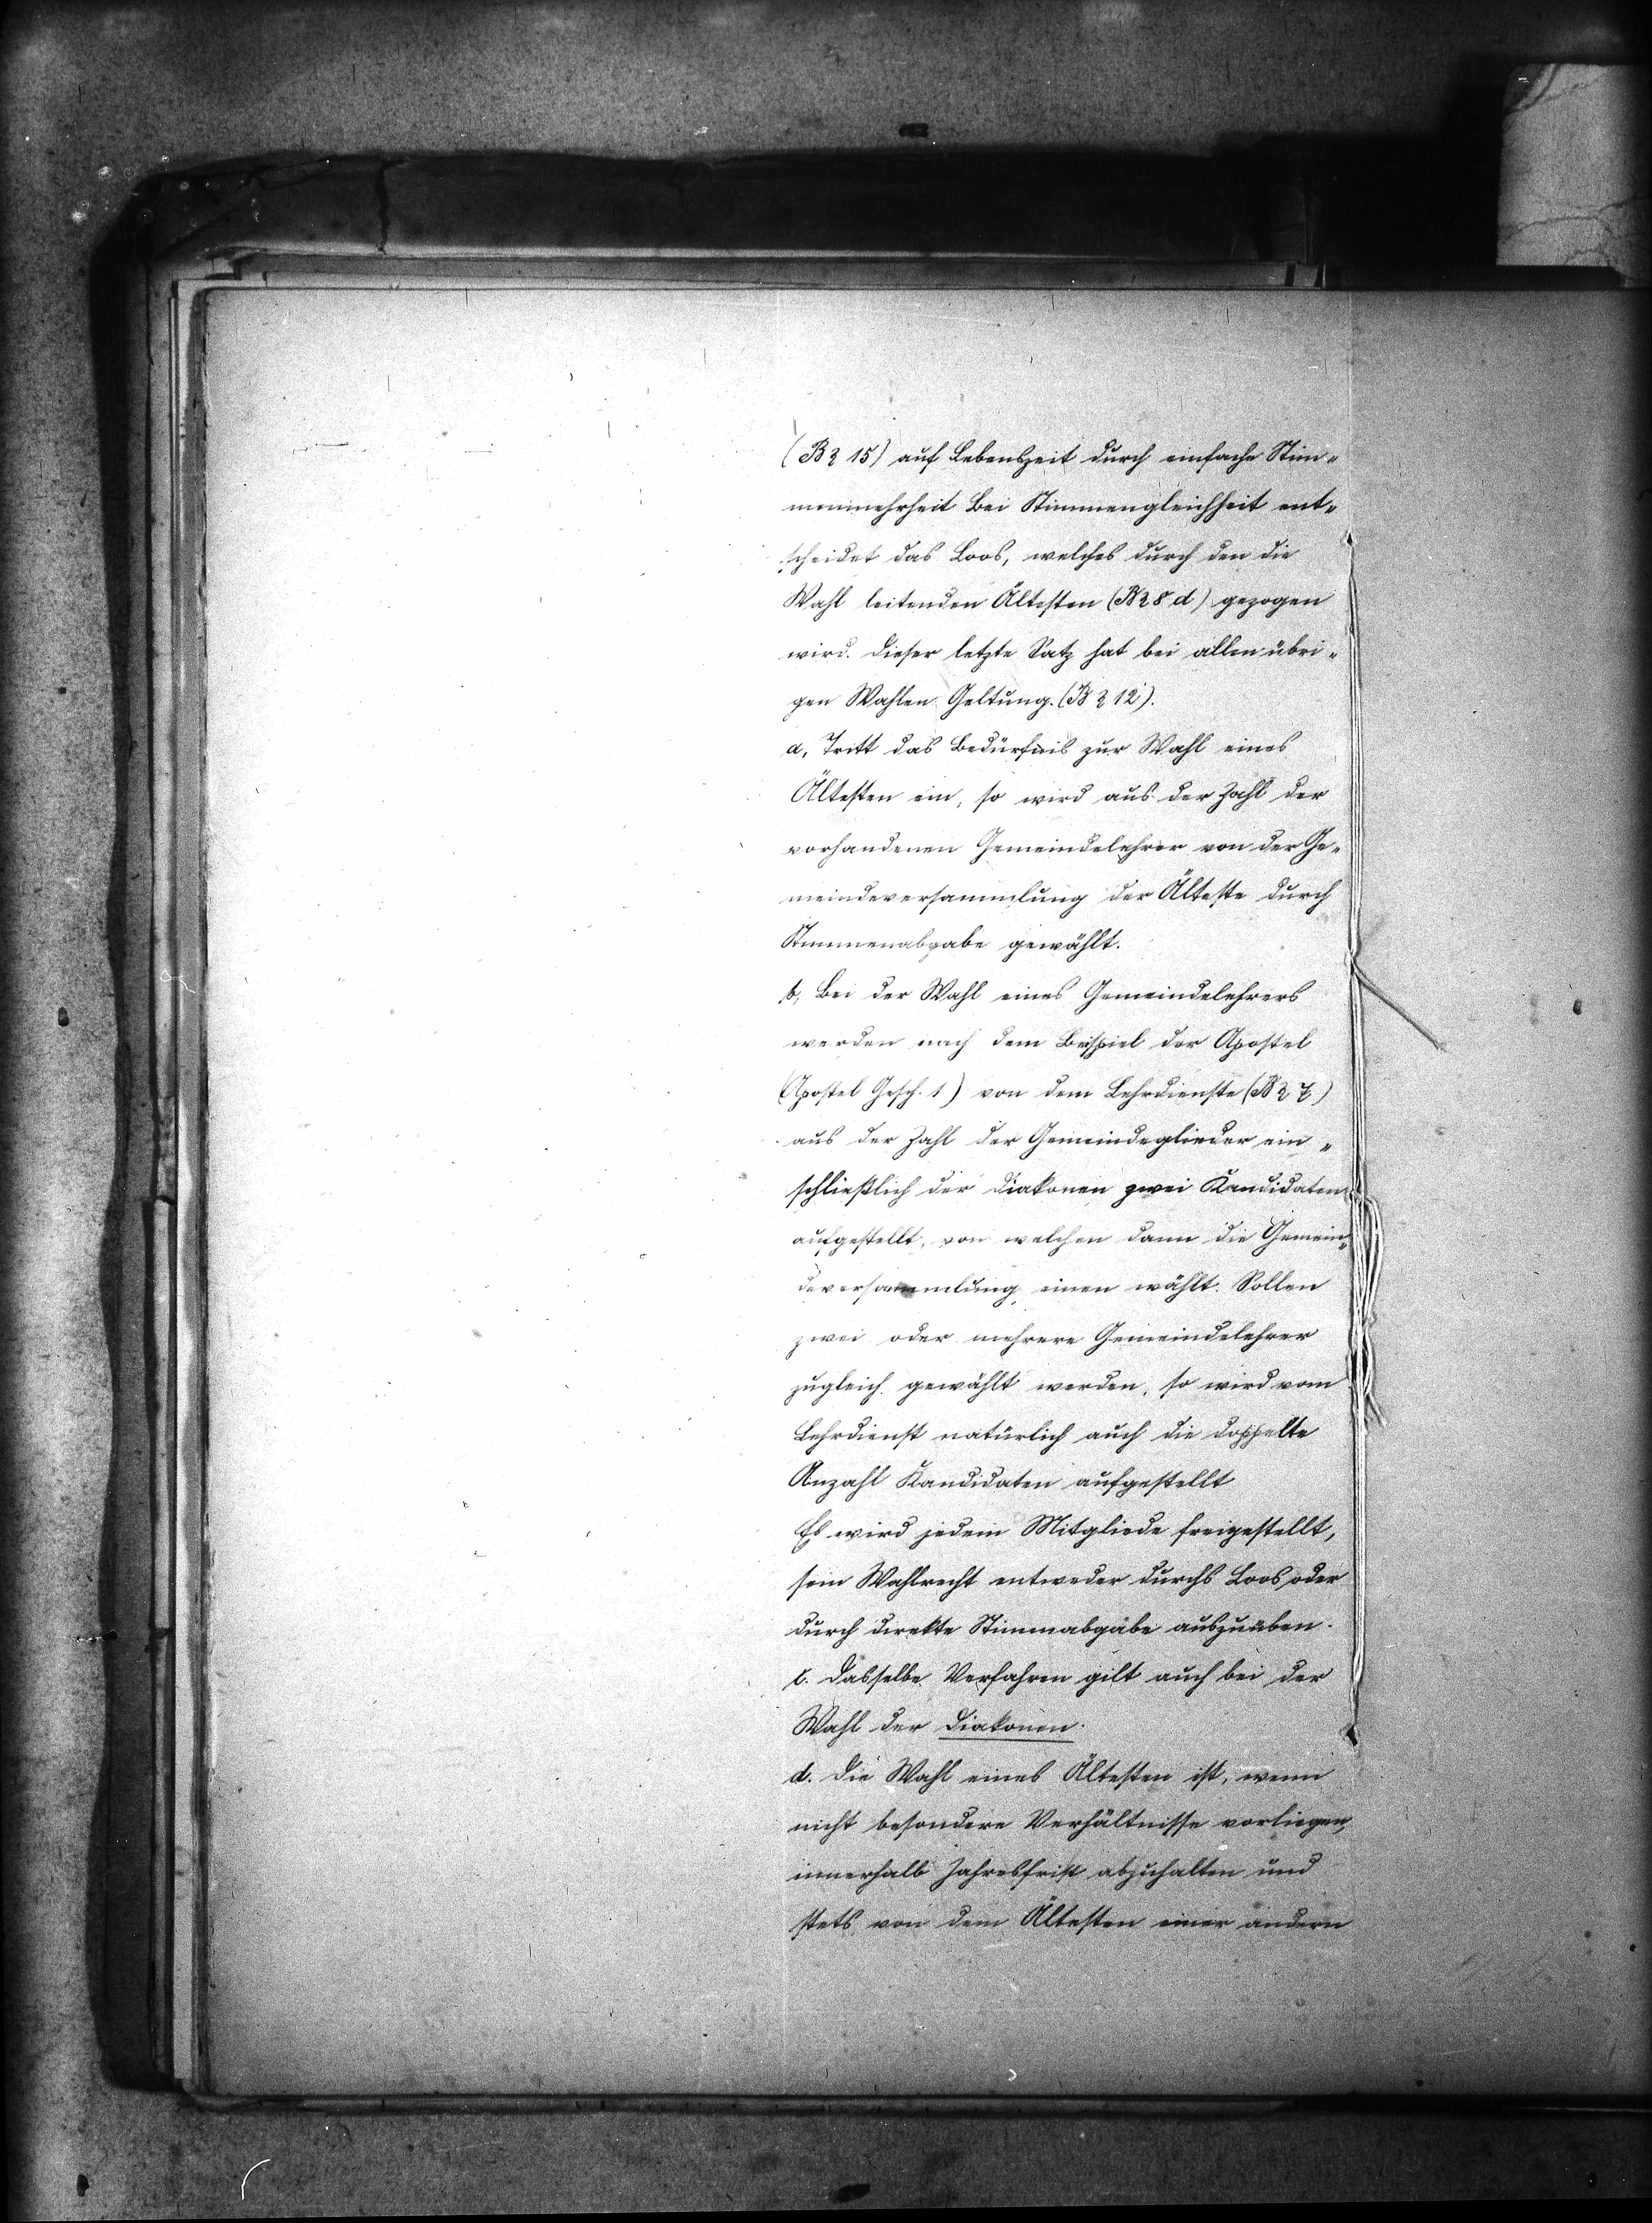 (B § 15) auf Lebenszeit durch einfache Stim-
menmehrheit Bei Stimmengleichheit ent-
scheidet das Loos, welches durch den die
Wahl leitenden Ältesten (B § 8 d) gezogen
wird. Dieser letzte Satz hat bei allen übri-
gen Wahlen Geltung. (B § 12).
a, Tritt das Bedürfnis zur Wahl eines
Ältesten ein, so wird aus der Zahl der
vorhandenen Gemeindelehrer von der Ge-
meindeversammlung der Älteste durch
Stimmenabgabe gewählt.
b, Bei der Wahl eines Gemeindelehrers
werden nach dem Beispiel der Apostel
(Apostel Gesch. 1) von dem Lehrdienste (B § 7)
aus der Zahl der Gemeindeglieder ein-
schließlich der Diakonen zwei Kandidaten
aufgestellt, von welchen dann die Gemein-
deversammlung einen wählt. Sollen
zwei oder mehrere Gemeindelehrer
zugleich gewählt werden, so wird vom
Lehrdienst natürlich auch die doppelte
Anzahl Kandidaten aufgestellt
Es wird jedem Mitgliede freigestellt,
sein Wahlrecht entweder durchs Loos oder
durch direkte Stimmabgabe auszuüben.
c. Dasselbe Verfahren gilt auch bei der
Wahl der Diakonen.
d. Die Wahl eines Ältesten ist, wenn
nicht besondere Verhältnisse vorliegen,
innerhalb Jahresfrist abzuhalten und
stets von dem Ältesten einer andern